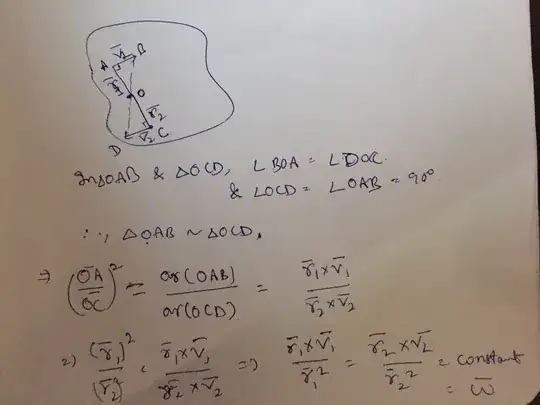 V̄₁
B
A
r̄₁
O
r̄₂
V̄₂ C
D
In ΔOAB & ΔOCD, ∠BOA = ∠DOC.
& ∠OCD = ∠OAB = 90°
∴, ΔOAB ~ ΔOCD,
⇒ (O̅A̅/O̅C̅)² = ar(OAB)/ar(OCD) = r̄₁×v̄₁/r̄₂×v̄₂
⇒ (r̄₁)²/(r̄₂)² = r̄₁×v̄₁/r̄₂×v̄₂ ⇒ r̄₁×v̄₁/r̄₁² = r̄₂×v̄₂/r̄₂² = constant
= ω̄